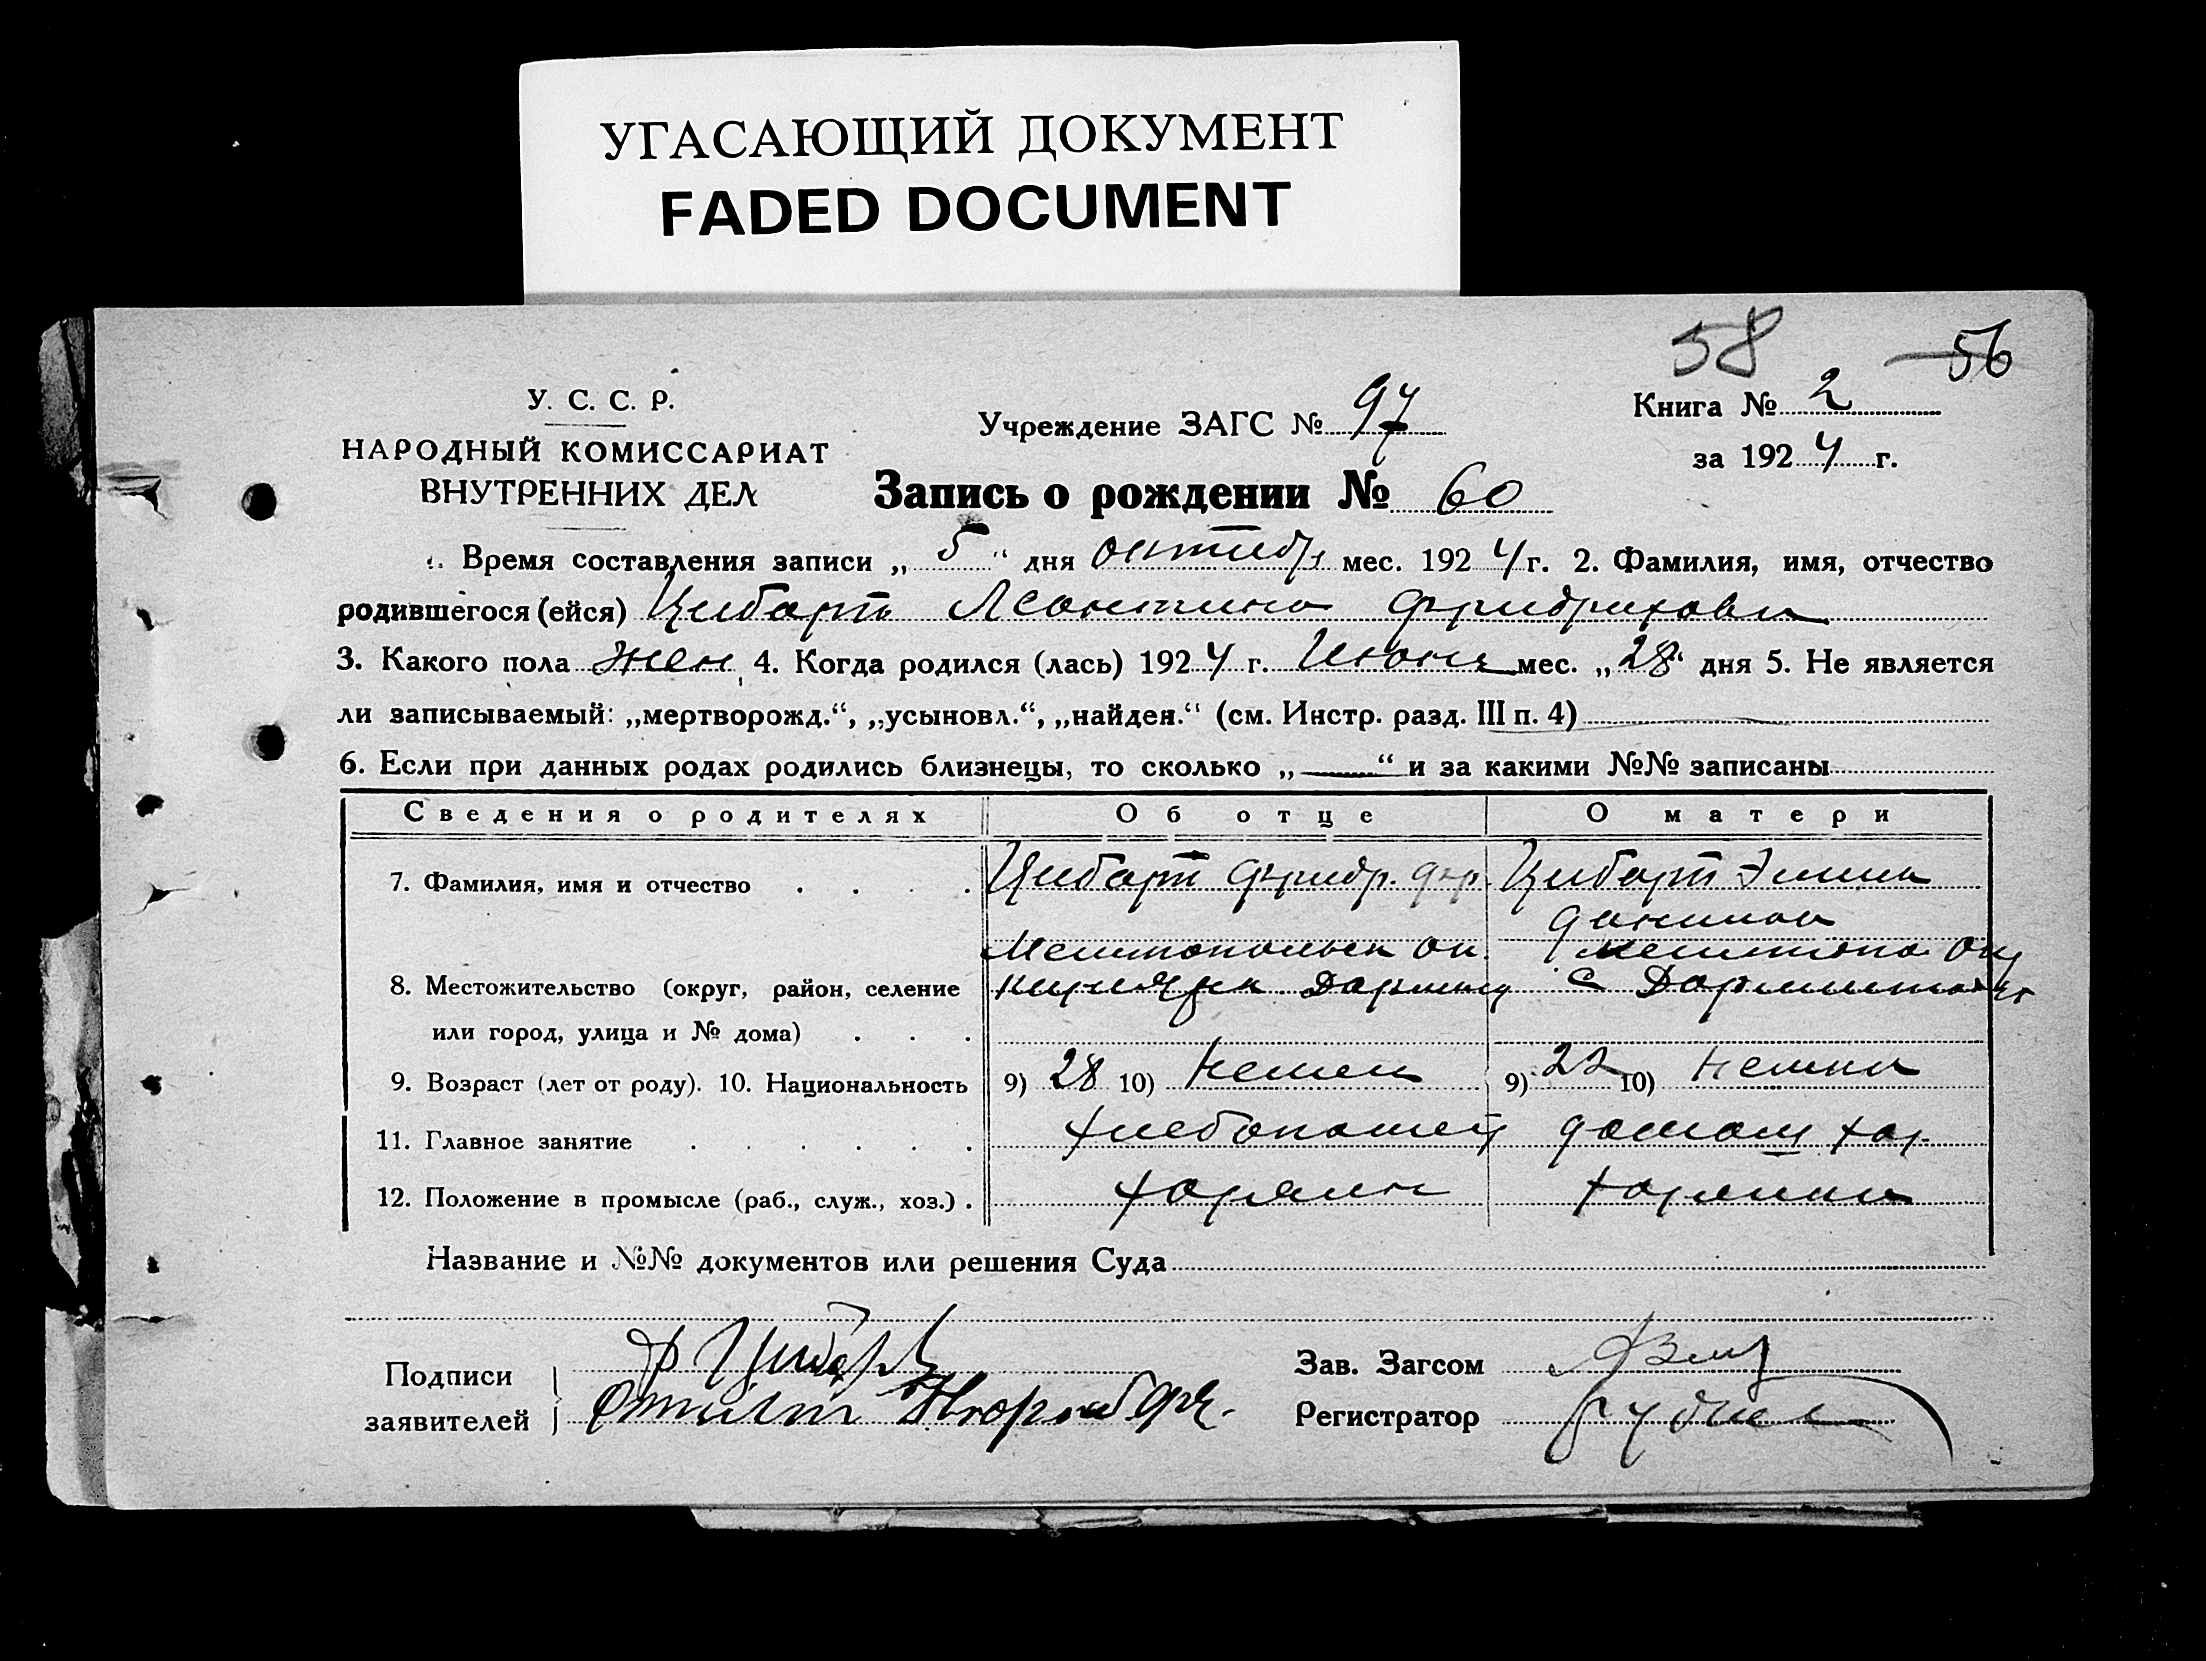 УГАСАЮЩИЙ ДОКУМЕНТ
FADED DOCUMENT
58 56
У. С. С. Р.
НАРОДНЫЙ КОМИССАРИАТ
ВНУТРЕННИХ ДЕЛ
Учреждение ЗАГС № 97
Книга № 2
за 1924 г.
Запись о рождении № 60
Время составления записи „5“ дня октябр мес. 1924 г. 2. Фамилия, имя, отчество
родившегося (ейся) Цибарт Леонтина Фридриховн
3. Какого пола жен 4. Когда родился (лась) 1924 г. Июня мес. „28“ дня 5. Не является
ли записываемый: „мертворожд.“, „усыновл.“, „найден.“ (см. Инстр. разд. III п. 4)
6. Если при данных родах родились близнецы, то сколько „—“ и за какими №№ записаны
Сведения о родителях Об отце О матери
7. Фамилия, имя и отчество Цибарт Фридр. Фр. Цибарт
8. Местожительство (округ, район, селение
или город, улица и № дома)
9. Возраст (лет от роду). 10. Национальность 9) 28 10) немец 9) 22 10) немка
11. Главное занятие хлебопашец домаш хоз.
12. Положение в промысле (раб., служ., хоз.) хозяин хозяйка
Название и №№ документов или решения Суда
Подписи
заявителей
Ф Цибарт
Зав. Загсом
Регистратор